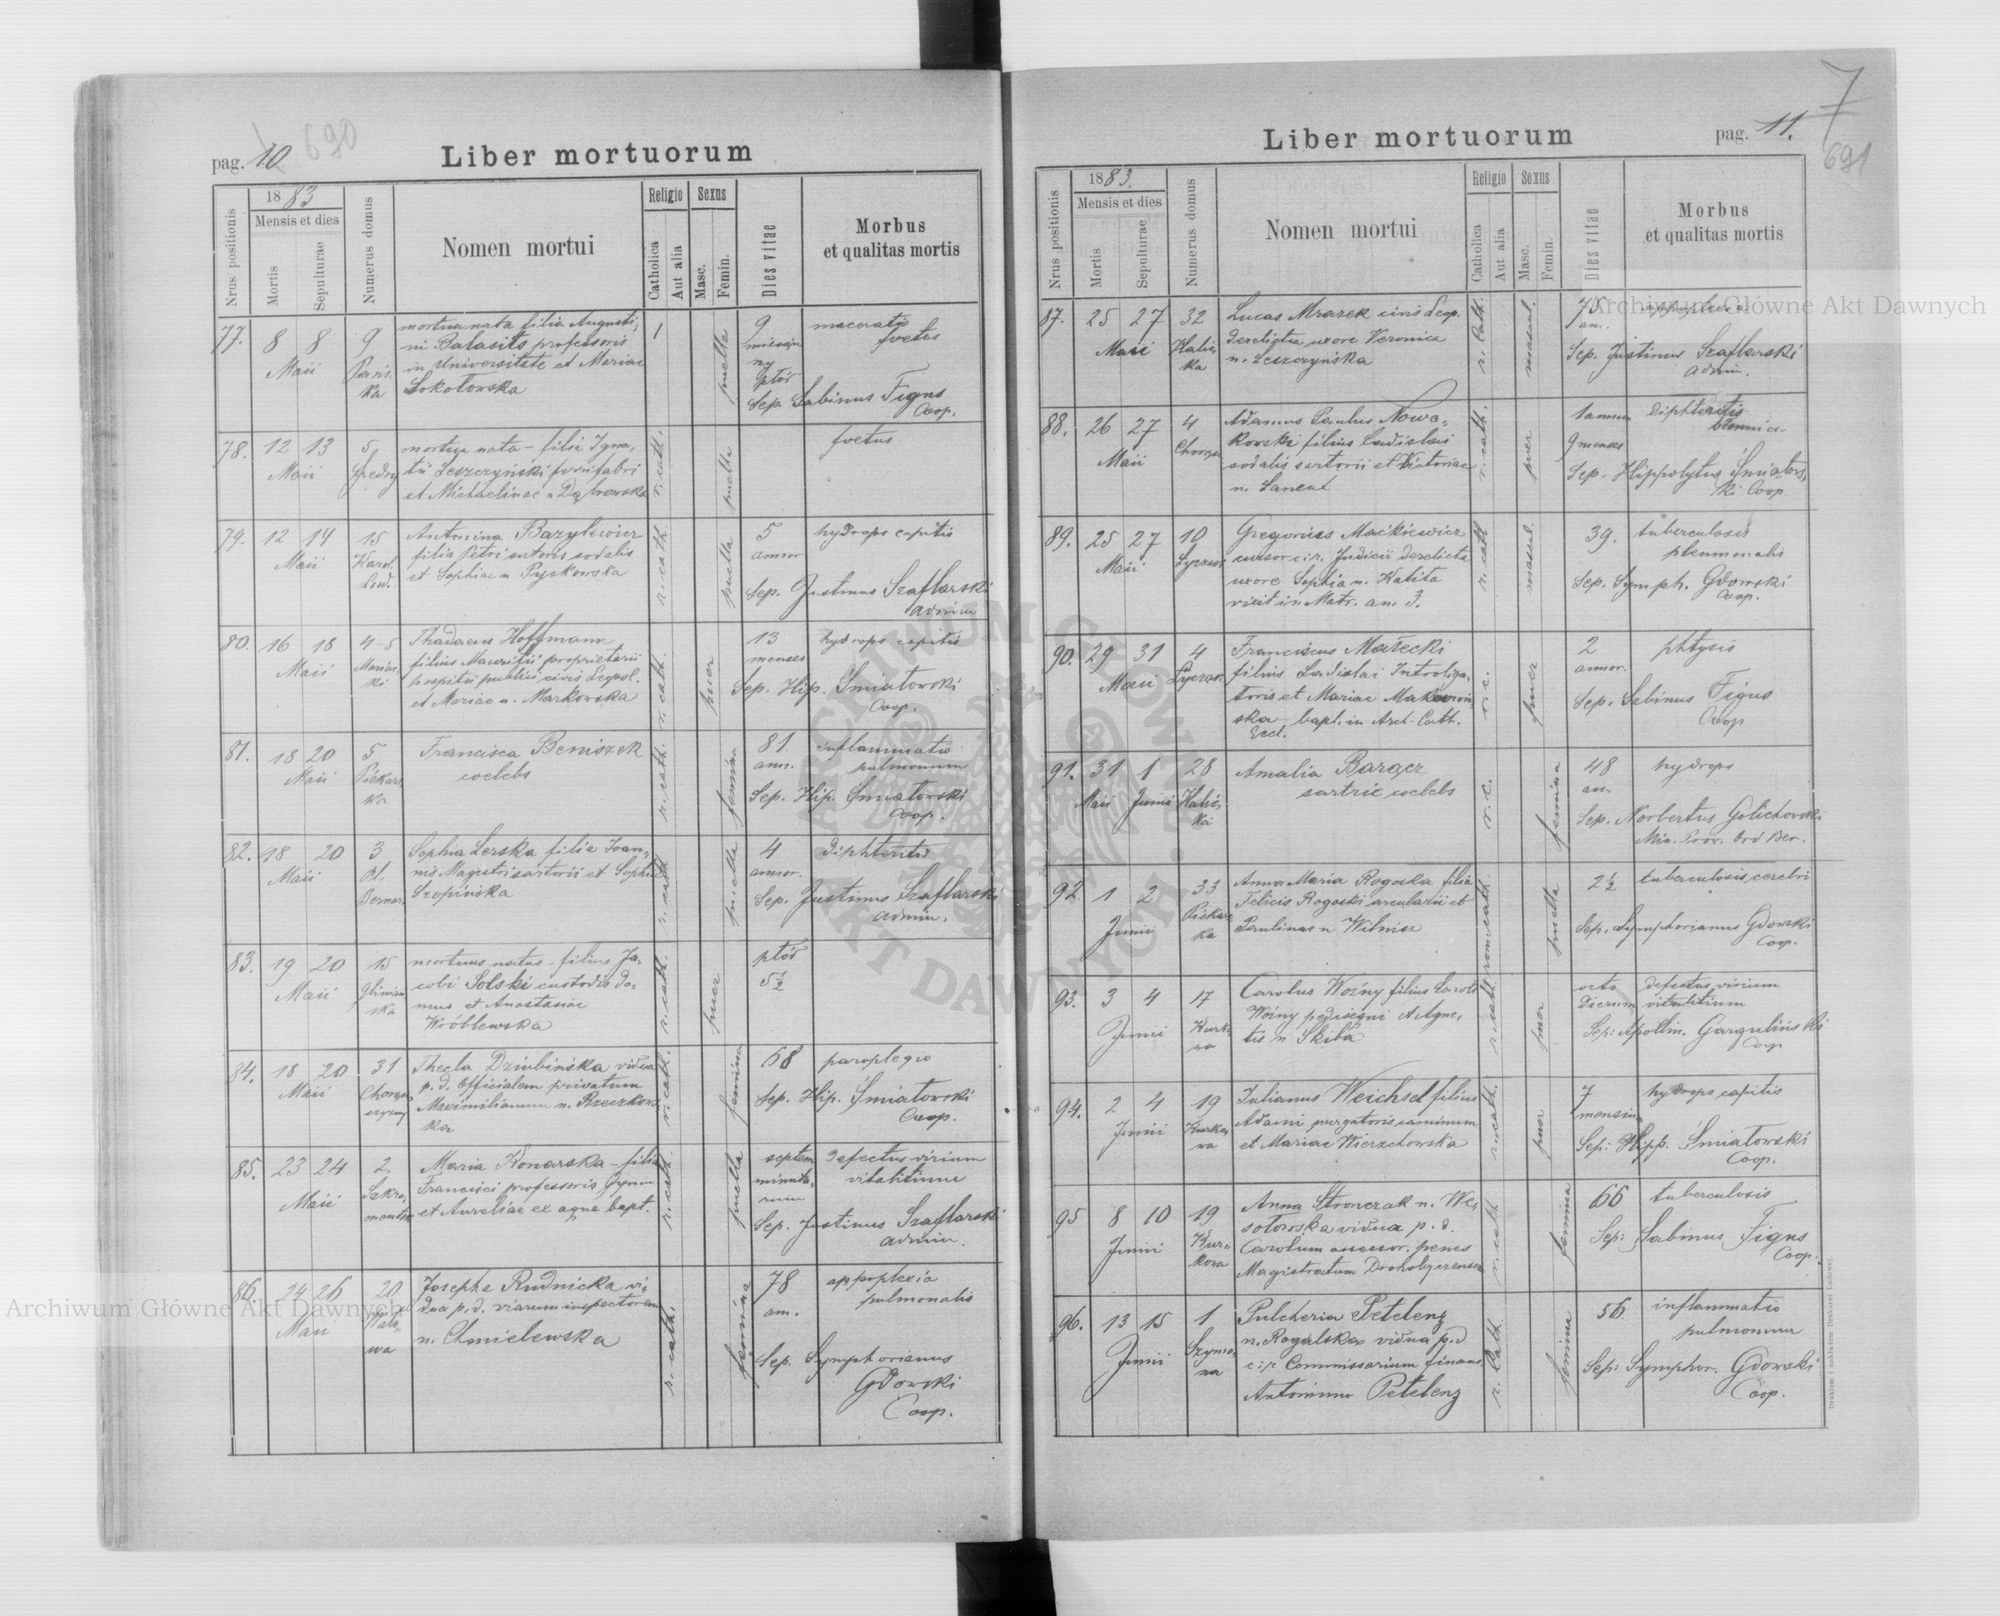 690
pag. 10
Liber mortuorum
Nrus positionis
1883
Mensis et dies
Mortis
Sepulturae
Numerus domus
Nomen mortui
Religio
Catholica
Aut alia
Sexus
Masc.
Femin.
Dies vitae
Morbus
et qualitas mortis
77. 8 8 9 mortua nata filia Augusti- 1 puella 9 maceratio
Maii ni Balasits professoris foetus
in Universitate et Mariae
ka Sokołowska
Sep. Sabinus Figus
Coop.
78. 12 13 5 mortua nata - filia Igna- r. cath. puella foetus
Maii Fredry tii Leszczyński
et Michaelinae n Dąbrowska
79. 12 14 15 Antonina Bazylewicz r. cath. puella 5 hydrops capitis
Maii Karol. filia Petri sutoris sodalis annor
Lud. et Sophiae n Pyskowska
Sep. Justinus Szaflarski
Admin
80. 16 18 4-5 Thadaeus Hoffmann r. cath. puer 13 hydrops capitis
Maii filius Mauritii proprietarii menses
ki hospitii publici civis Leopol.
et Mariae n. Markowska
Sep. Hip. Śmiatowski
Coop.
81. 18 20 5 Francisca Beniszek r. cath. femina 81. inflammatio
Maii Piekars coelebs annr. pulmonum
ka
Sep. Hip. Śmiatowski
Coop.
82. 18 20 3 Sophia Lerska filia Joan- r. cath puella 4 diphteritis
Maii Pl. nis Magistri sartorii et Sophiae annor.
Bernar. Szopińska
Sep. Justinus Szaflarski
Admin.
83. 19 20 15 mortuus natus - filius Ja- r. cath. puer
Maii Glinian cobi Solski custodis do- 5½
ska mus et Anastasiae
Wróblewska
84. 18 20 31 Thecla Dziubińska vidua r. cath. femina 68 paroplegio
Maii p. d. Officialem privatum
Maximilianum n. Rzeczkows
ka
Sep. Hip. Śmiatowski
Coop.
85. 23 24 2. Maria Konarska - filia r. cath. puella septem defectus virium
Maii Sakra- Francisci professoris Gymn minuta- vitalitium
mentek et Aureliae ex aqua bapt. rum
Sep. Justinus Szaflarski
Admin.
86. 24 26 20 Josepha Rudnicka vi- r. cath. femina 78 appoplexia
Maii dua p. d. viarum inspectorem an. pulmonalis
wa n. Chmielewska
Sep. Symphorianus
Gdowski
Coop.
7
691
Liber mortuorum
pag. 11.
Nrus positionis
1883.
Mensis et dies
Mortis
Sepulturae
Numerus domus
Nomen mortui
Religio
Catholica
Aut alia
Sexus
Masc.
Femin.
Dies vitae
Morbus
et qualitas mortis
87. 25 27 32 Lucas Mrazek civis Leop. r. Cath. mascul. 75 appoplexia
Maii Halic- derelicta uxore Veronica an.
ka n. Leszczyńska
Sep. Justinus Szaflarski
Admin.
88. 26 27 4 Adamus Paulus Nowa- r. cath. puer 1 annum diphteritis
Maii Chorąż kowski filius Ladislai 9 menses
sodalis sartorii et Victoriae
n. Lancut
Sep. Hippolytus Śmiatows
ki Coop.
89. 25 27 10 Gregorius Maćkiewicz r. cath mascul. 39. tuberculosis
Maii cursor c. r. Judicii derelicta
uxore Sophia n. Kalita
vixit in Matr. an. 3.
Sep. Symph. Gdowski
Coop.
90. 29 31 4 Franciscus Małecki r. c. puer 2 phtysis
Maii Łyczar. filius Ladislai Introliga- annor.
toris et Mariae
ska bapt. in Arch. Cath.
Eccl.
Sep. Sabinus Figus
Coop
91. 31 1 28 Amalia Barącz r. c. femina 48 hydrops
Maii Junii Halic- sartrix coelebs an.
ka
Sep. Norbertus Golichowski
Min. Prov. Ord Ber.
92. 1 2 33 Anna Maria Rogoska filia rom cath. puella 2½ tuberculosis cerebri
Junii Piekars Felicis Rogoski arcularii et
ka Paulinae n Wilnisz
Sep. Symphorianus Gdowski
Coop.
93. 3 4 17 Carolus Woźny filius Caroli r. cath. puer octo defectus virium
Junii Kurko- Woźny pedisegni et Agne- dierum vitalitium
wa tis n Skiba
Sep: Apollin. Gargulinski
Coop
94. 2 4 19 Julianus Weichsel filius r. cath. puer 7 hydrops capitis
Junii Kurko- Adami purgatoris caminum mensium
wa et Mariae Wierzchowska
Sep: Hipp. Śmiatowski
Coop.
95 8 10 19 Anna Stronczak n. We- r. cath femina 66 tuberculosis
Junii Kur- sołowska vidua p. d.
kowa Carolum assessor. penes
Magistratum Drohobyczensem
Sep: Sabinus Figus
Coop.
96. 13 15 1 Pulcheria Petelenz r. Cath. femina 56. inflammatio
Junii Szymo- n. Rogalska vidua p. d pulmonum
na c: r: Commissarium finans.
Antonium Petelenz
Sep: Symphor. Gdowski
Coop.
Drukiem i nakładem Drukarni Ludowej.
Archiwum Główne Akt Dawnych
Archiwum Główne Akt Dawnych
ARCHIWUM GŁÓWNE AKT DAWNYCH